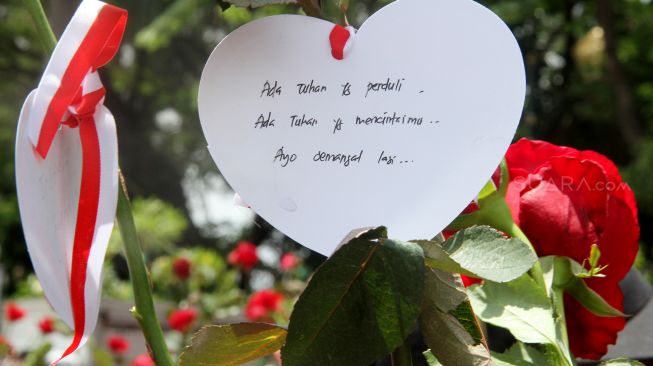 Ada Tuhan yg perduli .
Ada Tuhan yg mencintaimu ..
Ayo semangat lagi ...
SUARA.com